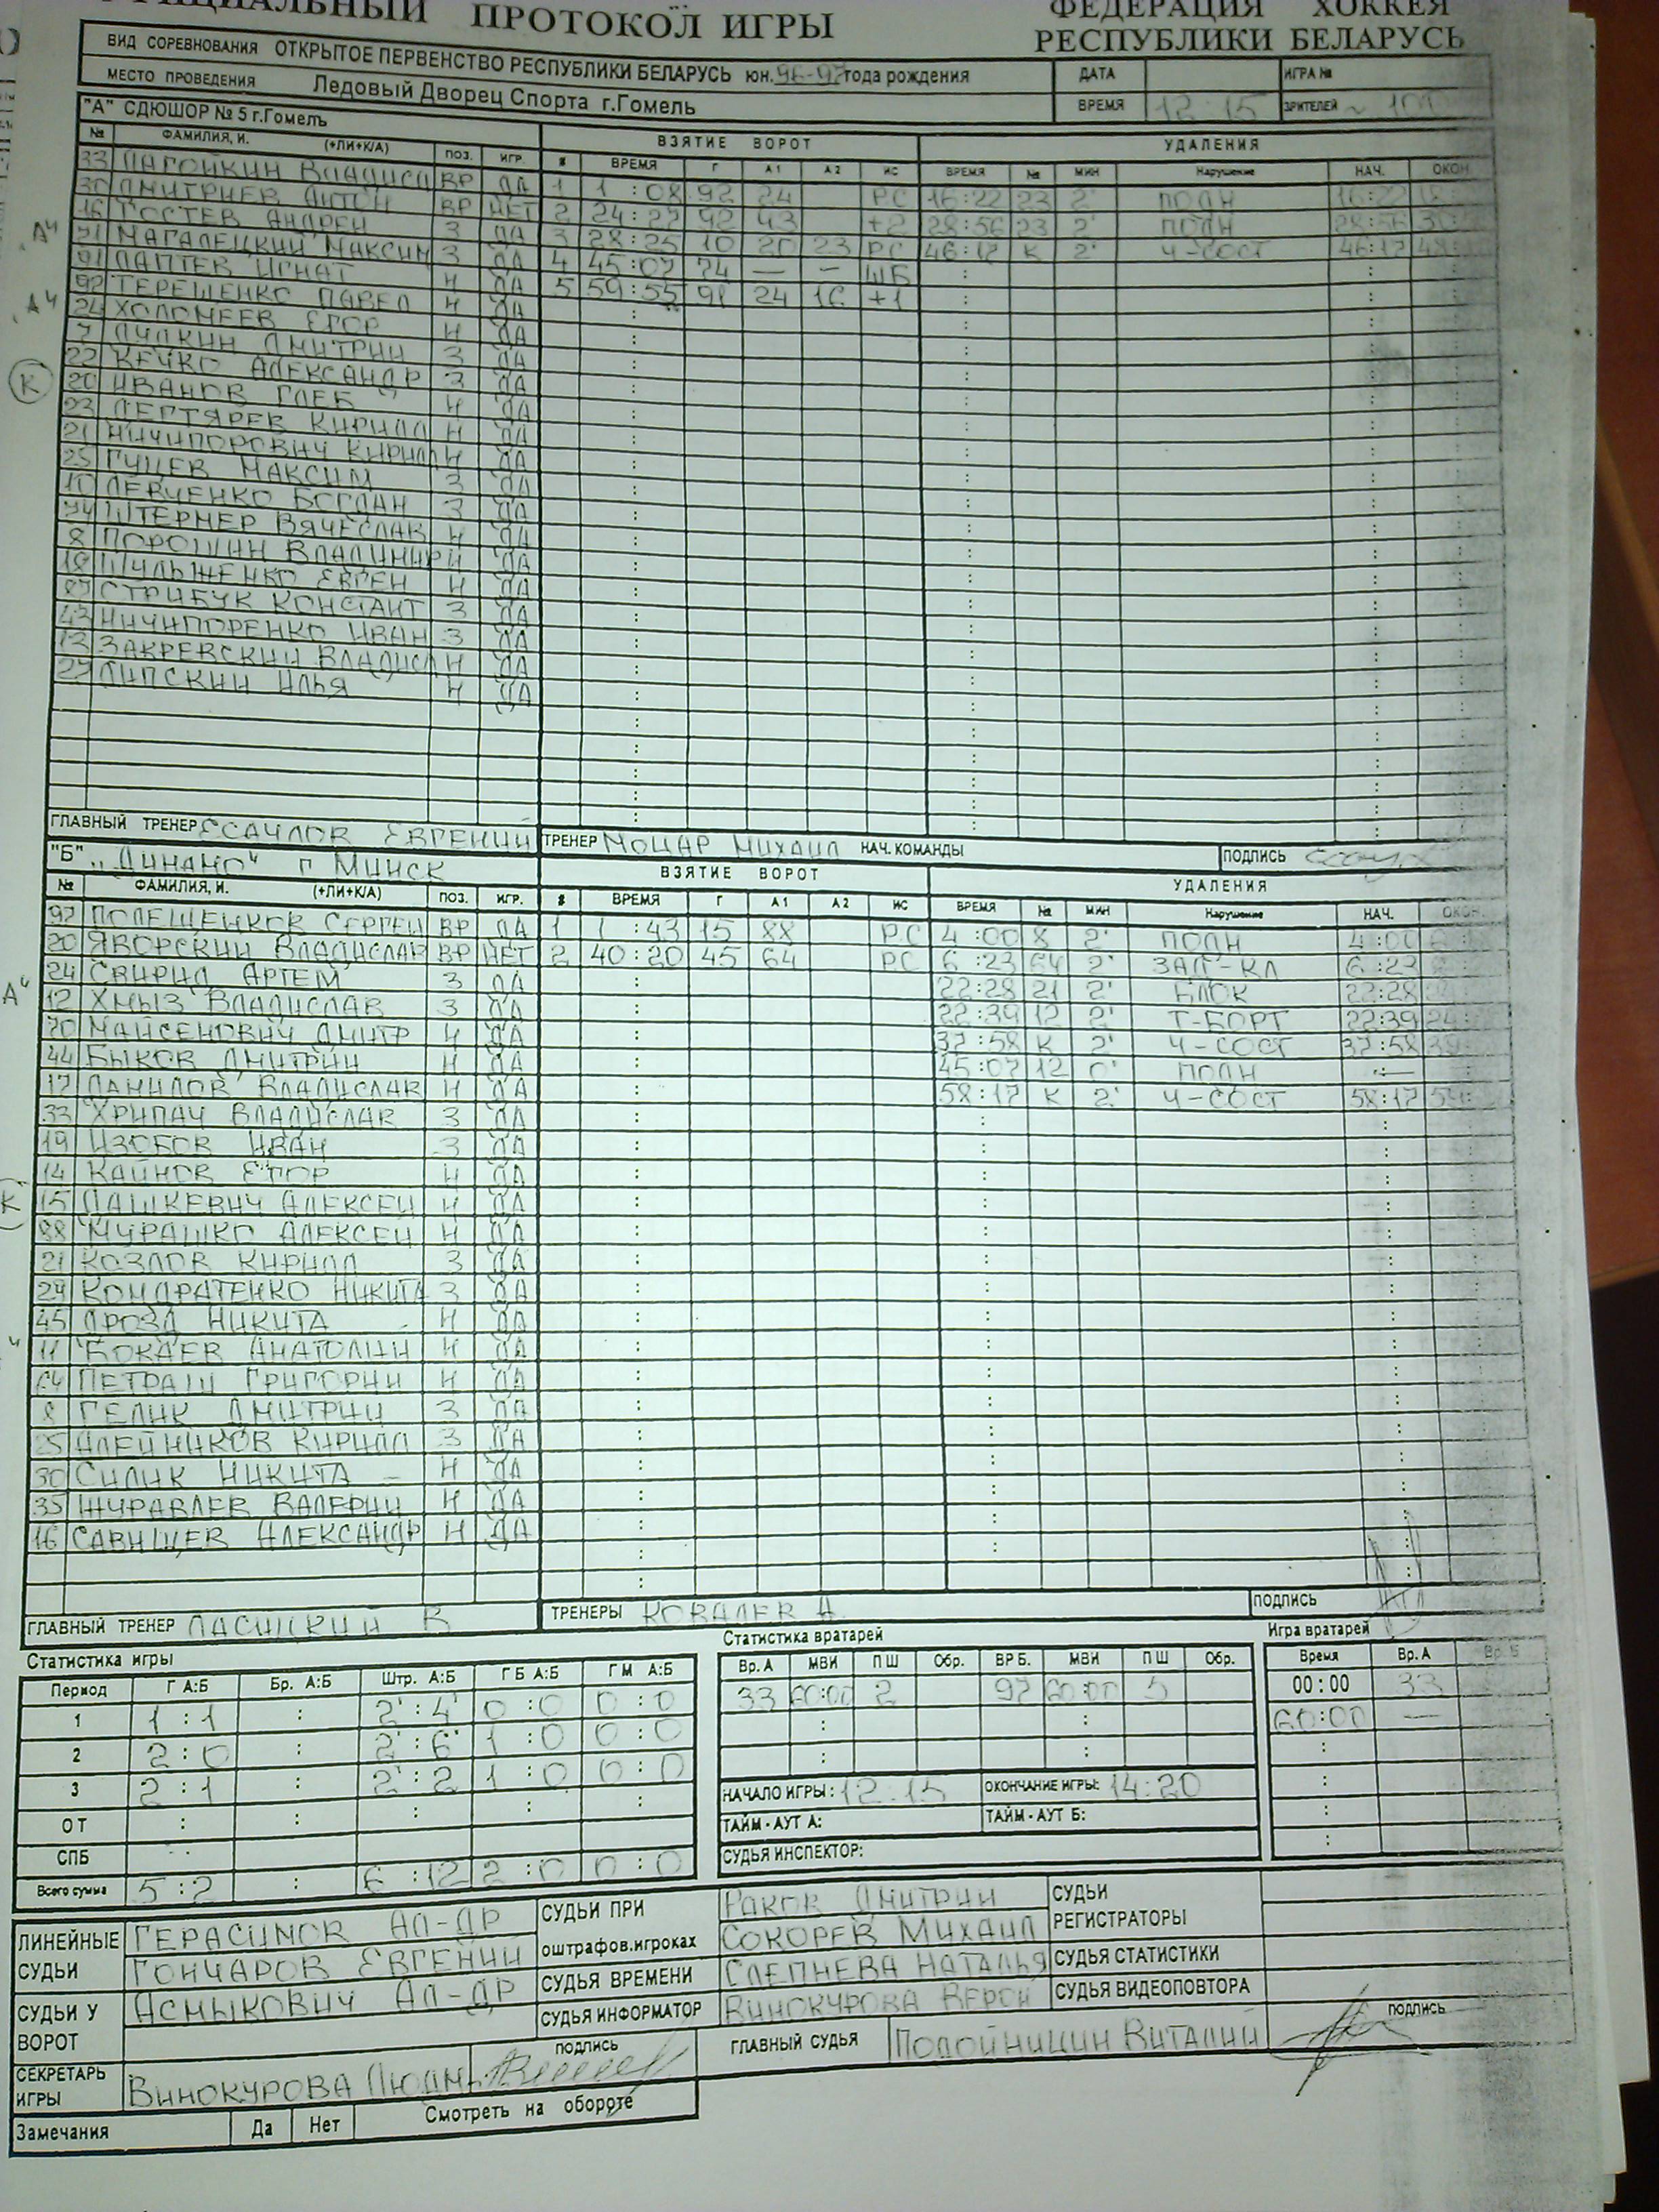 ПРОТОКОЛ ИГРЫ
ФЕДЕРАЦИЯ ХОККЕЯ
РЕСПУБЛИКИ БЕЛАРУСЬ
ВИД СОРЕВНОВАНИЯ ОТКРЫТОЕ ПЕРВЕНСТВО РЕСПУБЛИКИ БЕЛАРУСЬ юн. 96-97 года рождения ДАТА ИГРА №
МЕСТО ПРОВЕДЕНИЯ Ледовый Дворец Спорта г.Гомель ВРЕМЯ 12:15 ЗРИТЕЛЕЙ ~ 100
"А" СДЮШОР № 5 г.Гомель ВЗЯТИЕ ВОРОТ УДАЛЕНИЯ
№ ФАМИЛИЯ, И. (+ЛИ+К/А) ПОЗ. ИГР. # ВРЕМЯ Г А1 А2 ИС ВРЕМЯ № МИН Нарушение НАЧ. ОКОН
33 ЛАГОЙКИН ВЛАДИСЛ ВР ДА 1 1:08 92 24 РС 16:22 23 2' ПОДН 16:22
30 ДМИТРИЕВ АНТОН ВР НЕТ 2 24:27 92 43 +2 28:56 23 2' ПОДН 28:56
16 ГОСТЕВ АНДРЕЙ З ДА 3 28:25 10 20 23 РС 46:17 К 2' Ч-СОСТ 46:17
"А" 71 МАГАЛЕЦКИЙ МАКСИМ З ДА 4 45:07 74 — — ШБ
91 ЛАПТЕВ ИГНАТ Н ДА 5 59:55 91 24 16 +1
"А" 92 ТЕРЕЩЕНКО ПАВЕЛ Н ДА
24 ХОЛОМЕЕВ ЕГОР Н ДА
7 ЛУЛКИН ДМИТРИЙ З ДА
22 КЕЧКО АЛЕКСАНДР З ДА
К 20 ИВАНОВ ГЛЕБ Н ДА
23 ДЕГТЯРЕВ КИРИЛЛ Н ДА
21 НИЧИПОРОВИЧ КИРИЛЛ Н ДА
25 ГУЦЕВ МАКСИМ З ДА
10 ЛЕВЧЕНКО БОГДАН З ДА
74 ШТЕРНЕР ВЯЧЕСЛАВ Н ДА
8 ПОРОШИН ВЛАДИМИР Н ДА
18 ШУЛЬЖЕНКО ЕВГЕН Н ДА
87 СТРИБУК КОНСТАНТ З ДА
43 НИЧИПОРЕНКО ИВАН З ДА
13 ЗАКРЕВСКИЙ ВЛАДИСЛ Н ДА
27 ЛИПСКИЙ ИЛЬЯ Н ДА
ГЛАВНЫЙ ТРЕНЕР ЕСАУЛОВ ЕВГЕНИЙ ТРЕНЕР МОЦАР МИХАИЛ НАЧ. КОМАНДЫ ПОДПИСЬ
"Б" „ДИНАМО" г МИНСК ВЗЯТИЕ ВОРОТ УДАЛЕНИЯ
№ ФАМИЛИЯ, И. (+ЛИ+К/А) ПОЗ. ИГР. # ВРЕМЯ Г А1 А2 ИС ВРЕМЯ № МИН Нарушение НАЧ. ОКОН.
97 ПОЛЕЩЕНКОВ СЕРГЕЙ ВР ДА 1 1:43 15 88 РС 4:00 8 2' ПОДН 4:00
20 ЯВОРСКИЙ ВЛАДИСЛАВ ВР НЕТ 2 40:20 45 64 РС 6:23 64 2' ЗАД-КЛ 6:23
24 СВИРИД АРТЕМ З ДА 22:28 21 2' БЛОК 22:28
А" 12 ХМЫЗ ВЛАДИСЛАВ З ДА 22:39 12 2' Т-БОРТ 22:39
70 МАЙСЕНОВИЧ ДМИТР Н ДА 37:58 К 2' Ч-СОСТ 37:58
44 БЫКОВ ДМИТРИЙ Н ДА 45:07 12 0' ПОДН —
17 ДАНИЛОВ ВЛАДИСЛАВ Н ДА 58:17 К 2' Ч-СОСТ 58:17
33 ХРИПАЧ ВЛАДИСЛАВ З ДА
19 ИЗОБОВ ИВАН З ДА
14 КАЙНОВ ЕГОР Н ДА
К 15 ПАШКЕВИЧ АЛЕКСЕЙ Н ДА
88 МУРАШКО АЛЕКСЕЙ Н ДА
21 КОЗЛОВ КИРИЛЛ З ДА
29 КОНДРАТЕНКО НИКИТА З ДА
45 ДРОЗД НИКИТА Н ДА
11 БОКАЕВ АНАТОЛИЙ Н ДА
64 ПЕТРАШ ГРИГОРИЙ Н ДА
8 ГЕЛИК ДМИТРИЙ З ДА
25 АЛЕЙНИКОВ КИРИЛЛ З ДА
30 СИЛИК НИКИТА Н ДА
35 ЖУРАВЛЕВ ВАЛЕРИЙ Н ДА
16 САВИЩЕВ АЛЕКСАНДР Н ДА
ГЛАВНЫЙ ТРЕНЕР ЛАСИЦКИЙ В ТРЕНЕРЫ КОВАЛЕВ А. ПОДПИСЬ
Статистика игры Статистика вратарей Игра вратарей
Период Г А:Б Бр. А:Б Штр. А:Б Г Б А:Б Г М А:Б Вр. А МВИ П Ш Обр. ВР Б. МВИ П Ш Обр. Время Вр. А Вр. Б
1 1:1 : 2':4' 0:0 0:0 33 60:00 2 97 60:00 5 00:00 33
2 2:0 : 2':6' 1:0 0:0 60:00 —
3 2:1 : 2':2 1:0 0:0
НАЧАЛО ИГРЫ: 12:15 ОКОНЧАНИЕ ИГРЫ: 14:20
ОТ ТАЙМ-АУТ А: ТАЙМ-АУТ Б:
СПБ СУДЬЯ ИНСПЕКТОР:
Всего сумма 5:2 : 6:12 2:0 0:0
ЛИНЕЙНЫЕ СУДЬИ ГЕРАСИМОВ АЛ-ДР СУДЬИ ПРИ оштрафов.игроках РАКОВ ДМИТРИЙ СУДЬИ РЕГИСТРАТОРЫ
ГОНЧАРОВ ЕВГЕНИЙ СОКОРЕВ МИХАИЛ
СУДЬИ У ВОРОТ АСМЫКОВИЧ АЛ-ДР СУДЬЯ ВРЕМЕНИ СЛЕПНЕВА НАТАЛЬЯ СУДЬЯ СТАТИСТИКИ
СУДЬЯ ИНФОРМАТОР ВИНОКУРОВА ВЕРОН СУДЬЯ ВИДЕОПОВТОРА
СЕКРЕТАРЬ ИГРЫ ВИНОКУРОВА ЛЮДМ ПОДПИСЬ ГЛАВНЫЙ СУДЬЯ ПОЛОЙНИЦИН ВИТАЛИЙ ПОДПИСЬ
Замечания Да Нет Смотреть на обороте